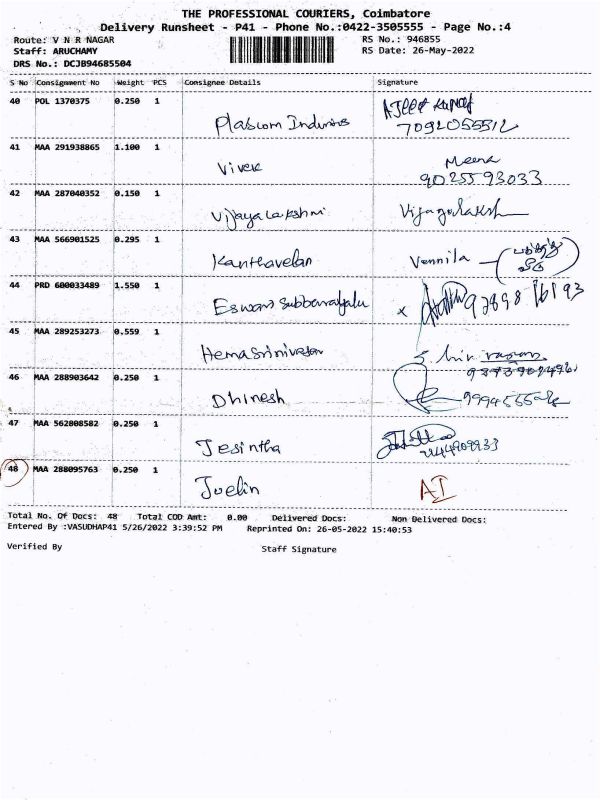 THE PROFESSIONAL COURIERS, Coimbatore
Delivery Runsheet - P41 - Phone No.:0422-3505555 - Page No.:4
Route: V N R NAGAR RS No.: 946855
Staff: ARUCHAMY RS Date: 26-May-2022
DRS No.: DCJB94685504
S No Consignment No Weight PCS Consignee Details Signature
40 POL 1370375 0.250 1 Ajeet Kumar
7092055512
41 MAA 291938865 1.100 1 Vivek Meena
9025593033
42 MAA 287040352 0.150 1 Vijayalakshmi
43 MAA 566901525 0.295 1 Kanthavelan Vennila
44 PRD 600033489 1.550 1 x 97898 16193
45 MAA 289253273 0.559 1 Hemasrinivasan
46 MAA 288903642 0.250 1 Dhinesh
47 MAA 562808582 0.250 1 Jesintha
48 MAA 288095763 0.250 1 Juelin AI
Total No. Of Docs: 48 Total COD Amt: 0.00 Delivered Docs: Non Delivered Docs:
Entered By :VASUDHAP41 5/26/2022 3:39:52 PM Reprinted On: 26-05-2022 15:40:53
Verified By Staff Signature